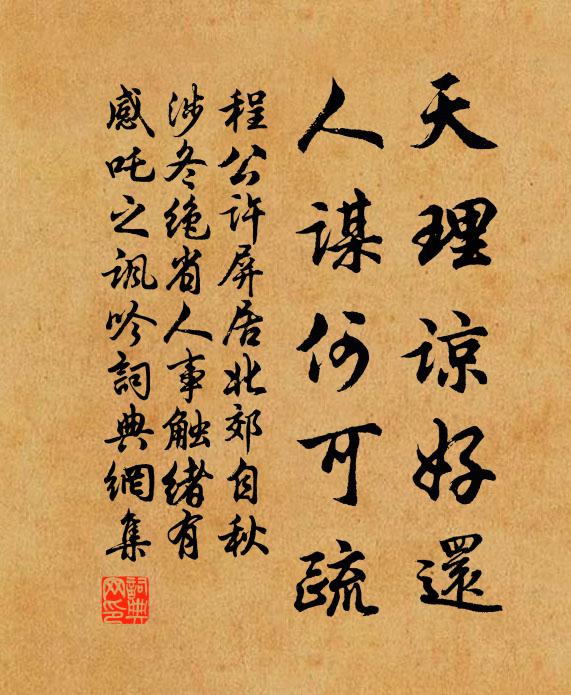 天理谅好還
人谋何可疏
程公许屏居北郊自秋
涉冬绝省人事触绪有
感吒之讽吟詞典網集
詞典